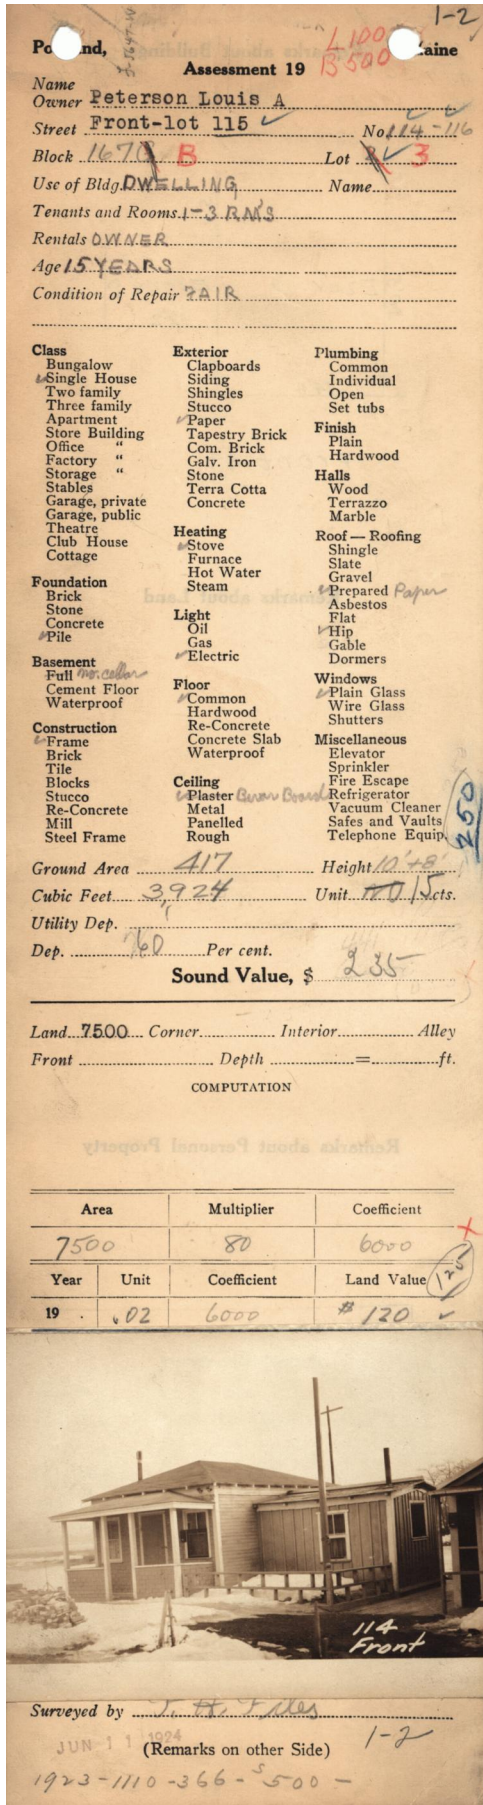 1-2
L 100
B 500
Portland, Maine
Assessment 19
Name
Owner Peterson Louis A
Street Front-lot 115 No. 114-116
Block 167 B Lot 3
Use of Bldg. DWELLING Name
Tenants and Rooms 1-3 RM'S
Rentals OWNER
Age 15 YEARS
Condition of Repair FAIR
Class
Bungalow
Single House
Two family
Three family
Apartment
Store Building
Office "
Factory "
Storage "
Stables
Garage, private
Garage, public
Theatre
Club House
Cottage
Foundation
Brick
Stone
Concrete
Pile
Basement
Full no. cellar
Cement Floor
Waterproof
Construction
Frame
Brick
Tile
Blocks
Stucco
Re-Concrete
Mill
Steel Frame
Exterior
Clapboards
Siding
Shingles
Stucco
Paper
Tapestry Brick
Com. Brick
Galv. Iron
Stone
Terra Cotta
Concrete
Heating
Stove
Furnace
Hot Water
Steam
Light
Oil
Gas
Electric
Floor
Common
Hardwood
Re-Concrete
Concrete Slab
Waterproof
Ceiling
Plaster Beaver Board
Metal
Panelled
Rough
Plumbing
Common
Individual
Open
Set tubs
Finish
Plain
Hardwood
Halls
Wood
Terrazzo
Marble
Roof — Roofing
Shingle
Slate
Gravel
Prepared Paper
Asbestos
Flat
Hip
Gable
Dormers
Windows
Plain Glass
Wire Glass
Shutters
Miscellaneous
Elevator
Sprinkler
Fire Escape
Refrigerator
Vacuum Cleaner
Safes and Vaults
Telephone Equip.
250
Ground Area 417 Height 10'+8'
Cubic Feet 3,924 Unit 15 cts.
Utility Dep.
Dep. 60 Per cent.
Sound Value, $ 235
Land 7500 Corner Interior Alley
Front Depth = ft.
COMPUTATION
Area Multiplier Coefficient
7500 80 6000
Year Unit Coefficient Land Value
125
19 .02 6000 $ 120
114
Front
Surveyed by
JUN 11 1924
(Remarks on other Side) 1-2
1923-1110-366-$500-